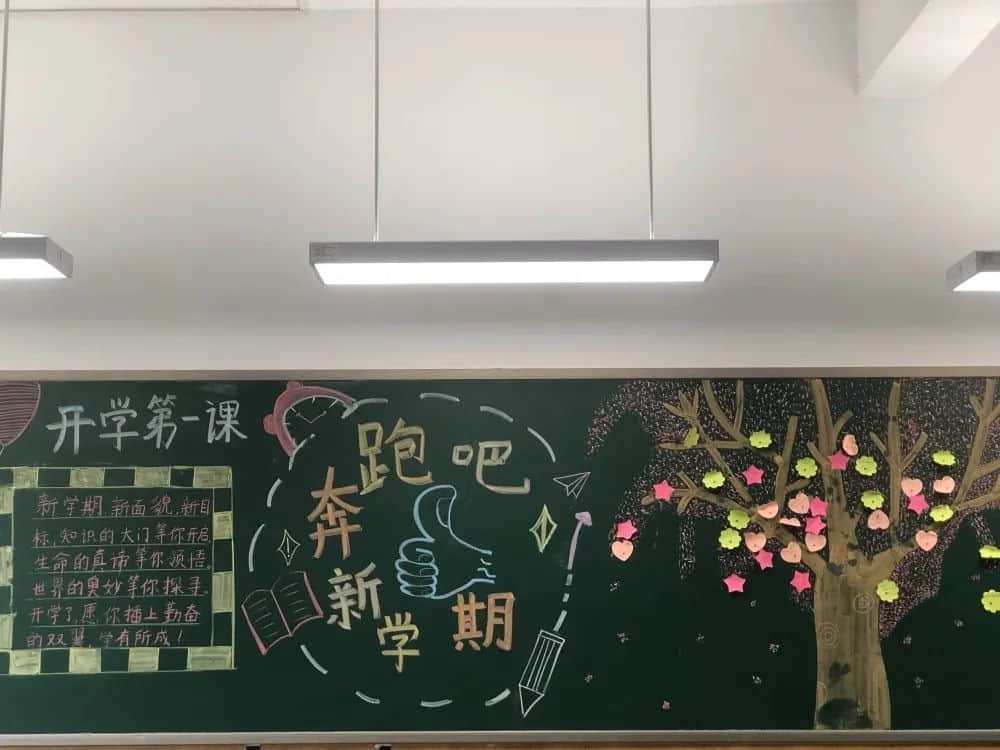 开学第一课
新学期,新面貌,新目
标,知识的大门等你开启
生命的真谛等你领悟。
世界的奥妙等你探寻。
开学了,愿你插上勤奋
的双翼,学有所成!
奔跑吧
新学期